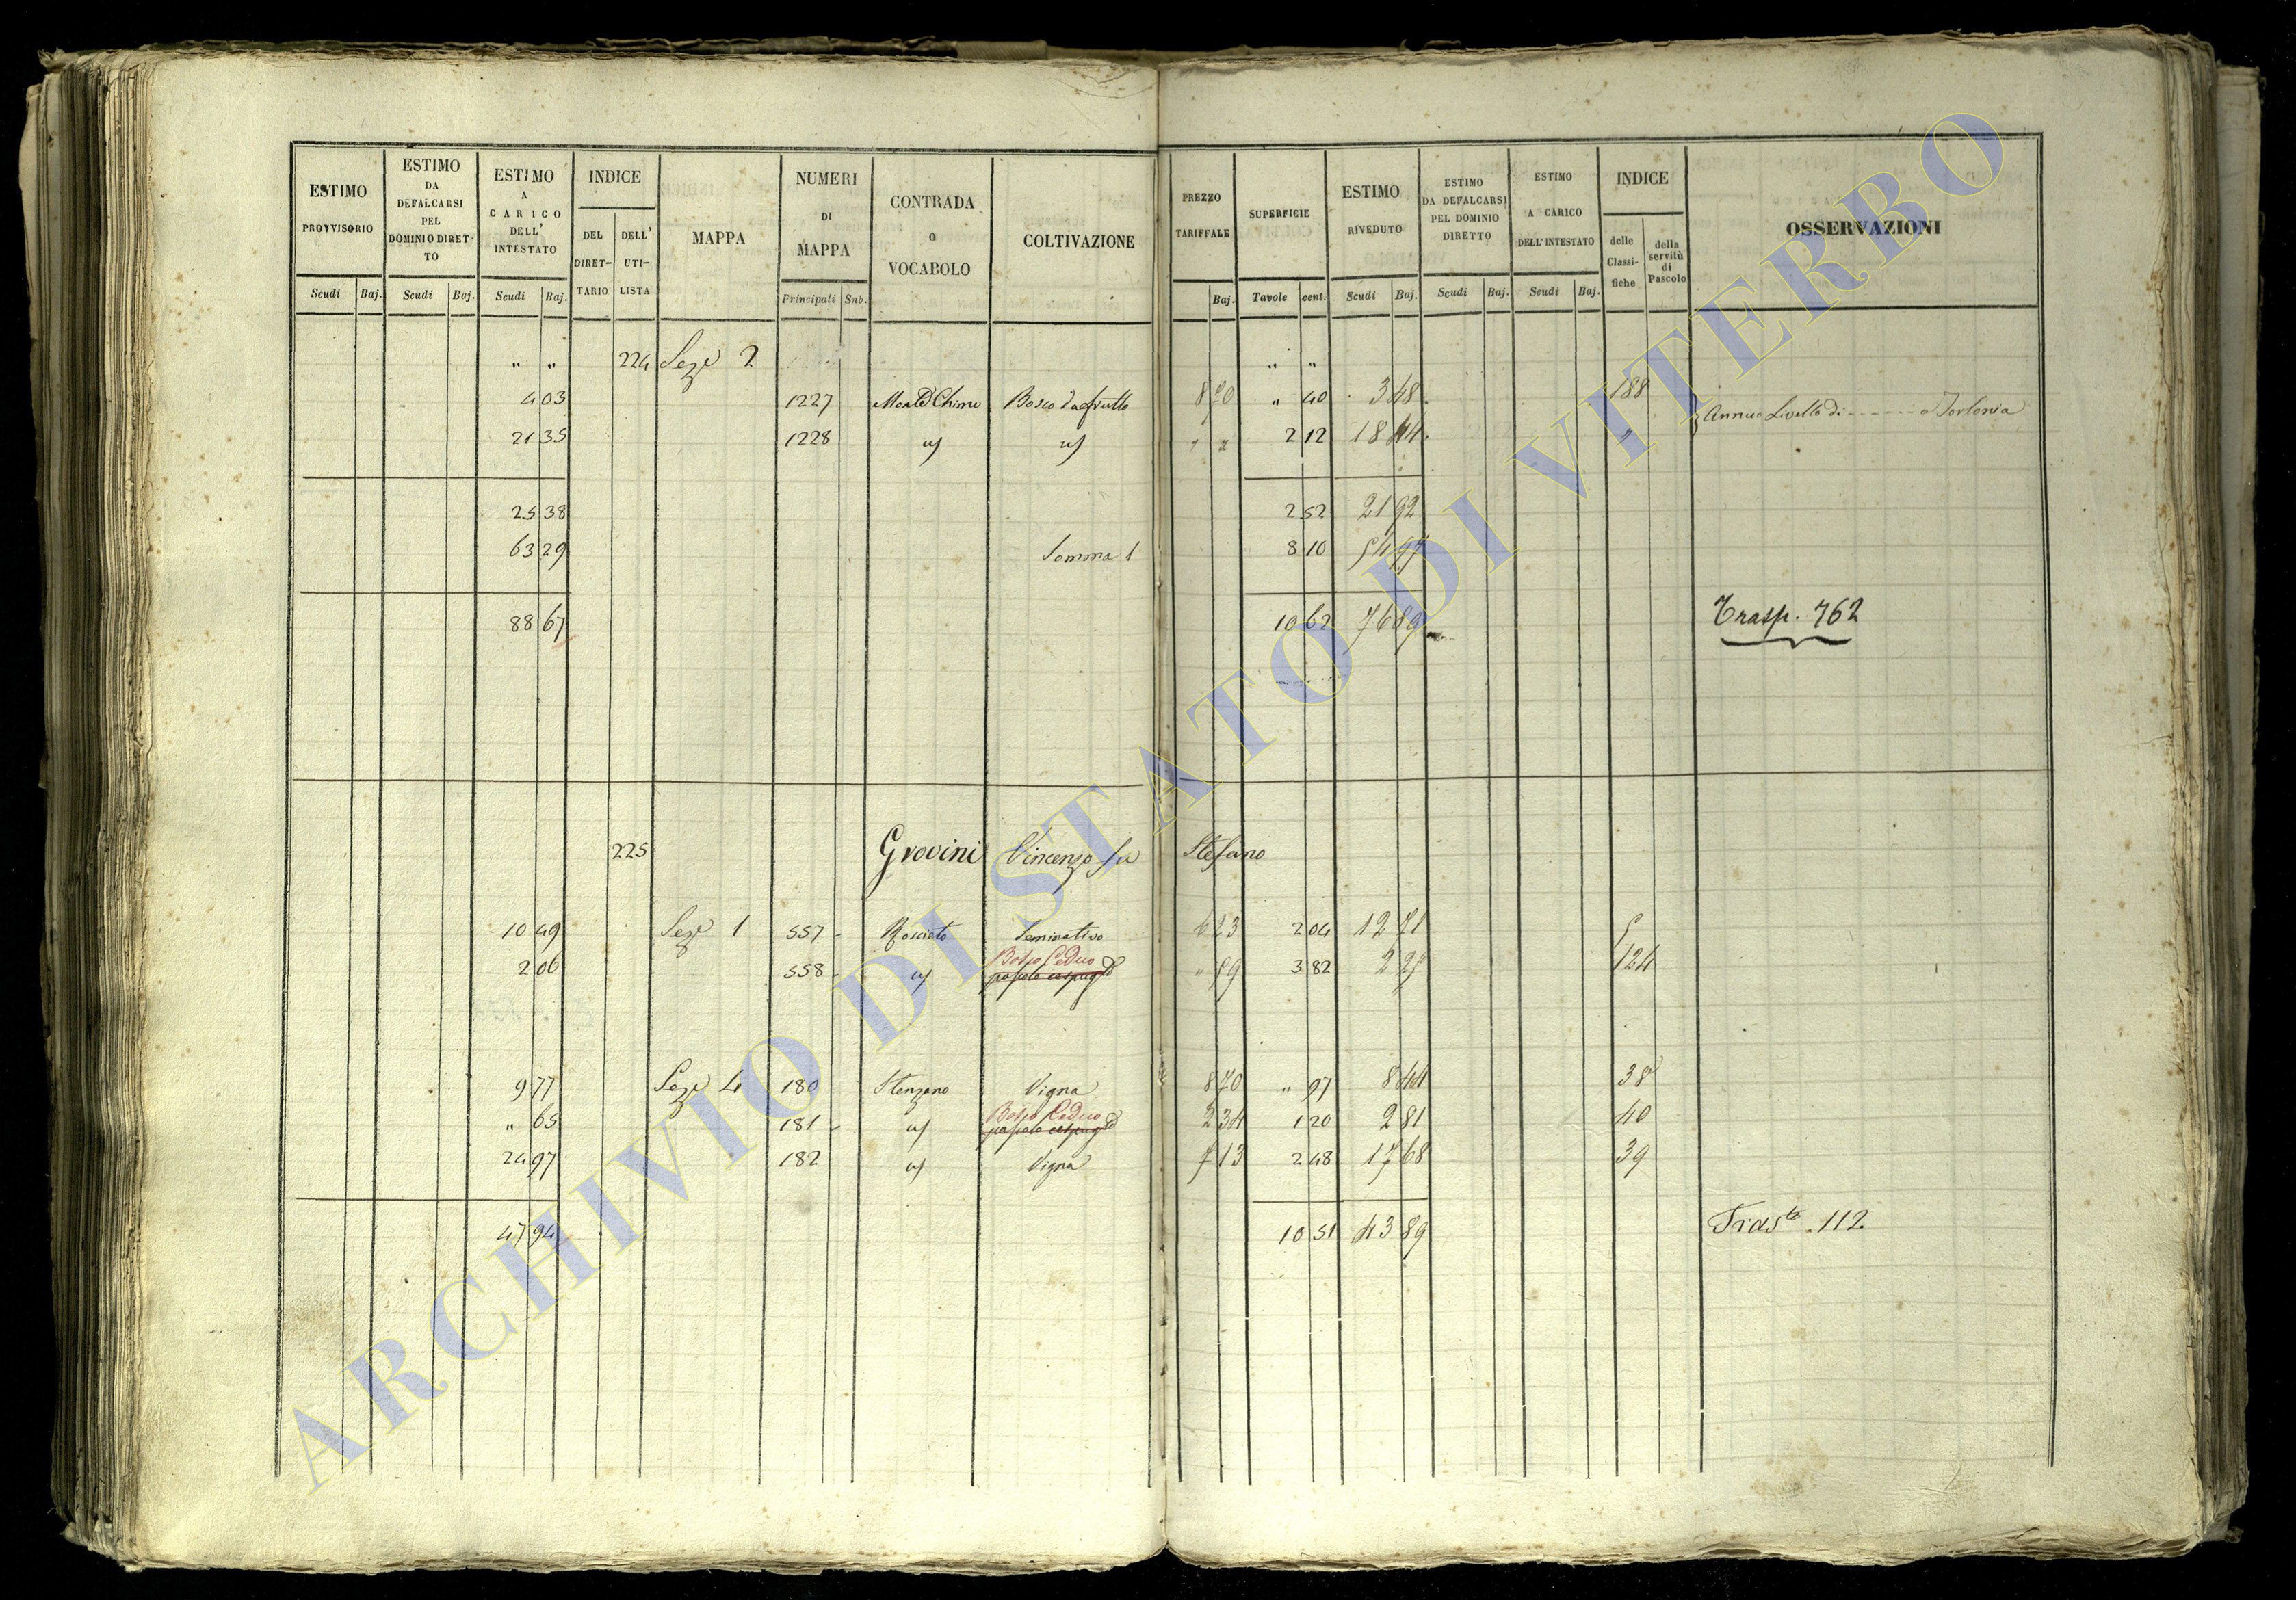 ESTIMO PROVVISORIO
Scudi Baj.
ESTIMO DA DEFALCARSI PEL DOMINIO DIRETTO
Scudi Baj.
ESTIMO A CARICO DELL' INTESTATO
Scudi Baj.
INDICE
DEL DIRET-TARIO
DELL' UTI-LISTA
MAPPA
NUMERI DI MAPPA
Principali Sub.
CONTRADA o VOCABOLO
COLTIVAZIONE
PREZZO TARIFFALE
Baj.
SUPERFICIE
Tavole cent.
ESTIMO RIVEDUTO
Scudi Baj.
ESTIMO DA DEFALCARSI PEL DOMINIO DIRETTO
Scudi Baj.
ESTIMO A CARICO DELL' INTESTATO
Scudi Baj.
INDICE
delle Classi-fiche
della servitù di Pascolo
OSSERVAZIONI
" " 224 Seze 2 " "
4 03 1227 Monte Chimo Bosco da frutto 8 70 " 40 3 48 188
Annuo Livello di - - - - - - a Torlonia
21 35 1228 2 12 18 44 "
25 38 2 52 21 92
63 29 Somma 1 8 10 54 97
88 67 10 62 76 89 Trasp. 762
225 Grovini Vincenzo fu Stefano
10 49 Seze 1 557 Rosceto Seminativo 6 23 2 04 12 71 5
2 06 558 Bosco Ceduo pascolo cespug " 59 3 82 2 27 124
9 77 Seze 4 180 Stenzano Vigna 8 70 " 97 8 44 38
" 65 181 Bosco Ceduo pascolo cespug 2 34 1 20 2 81 40
24 97 182 Vigna 7 13 2 48 17 68 39
47 94 10 51 43 89 112
ARCHIVIO DI STATO DI VITERBO